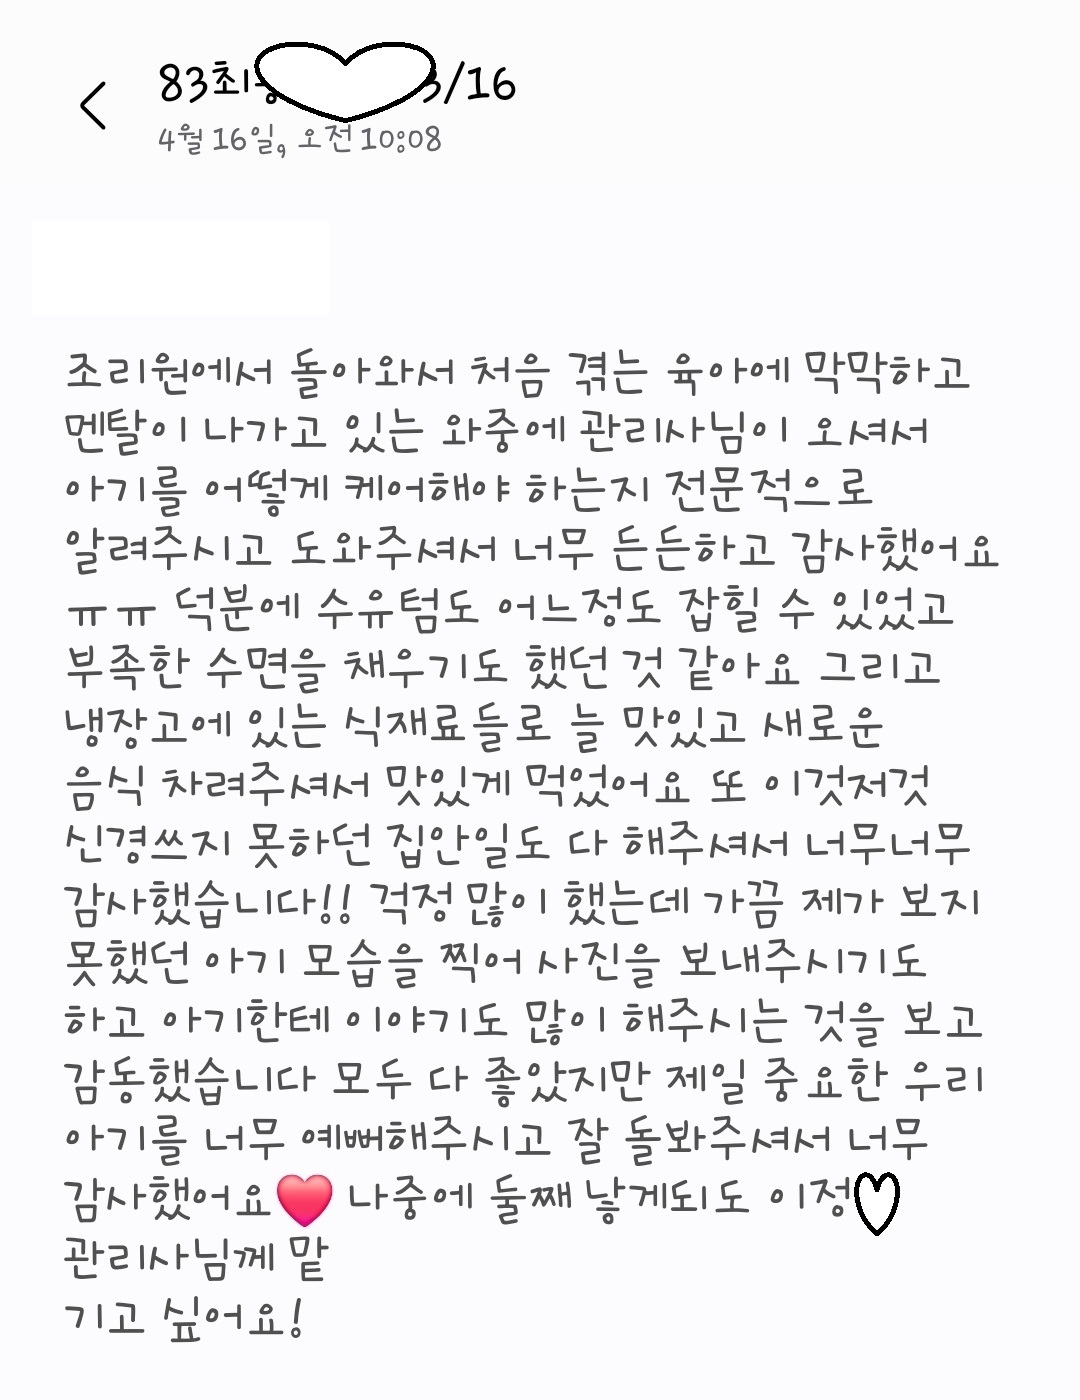 83최 3/16
4월 16일, 오전 10:08
조리원에서 돌아와서 처음 겪는 육아에 막막하고
멘탈이 나가고 있는 와중에 관리사님이 오셔서
아기를 어떻게 케어해야 하는지 전문적으로
알려주시고 도와주셔서 너무 든든하고 감사했어요
ㅠㅠ 덕분에 수유텀도 어느정도 잡힐 수 있었고
부족한 수면을 채우기도 했던 것 같아요 그리고
냉장고에 있는 식재료들로 늘 맛있고 새로운
음식 차려주셔서 맛있게 먹었어요 또 이것저것
신경쓰지 못하던 집안일도 다 해주셔서 너무너무
감사했습니다!! 걱정 많이 했는데 가끔 제가 보지
못했던 아기 모습을 찍어 사진을 보내주시기도
하고 아기한테 이야기도 많이 해주시는 것을 보고
감동했습니다 모두 다 좋았지만 제일 중요한 우리
아기를 너무 예뻐해주시고 잘 돌봐주셔서 너무
감사했어요❤️ 나중에 둘째 낳게되도 이정
관리사님께 맡
기고 싶어요!